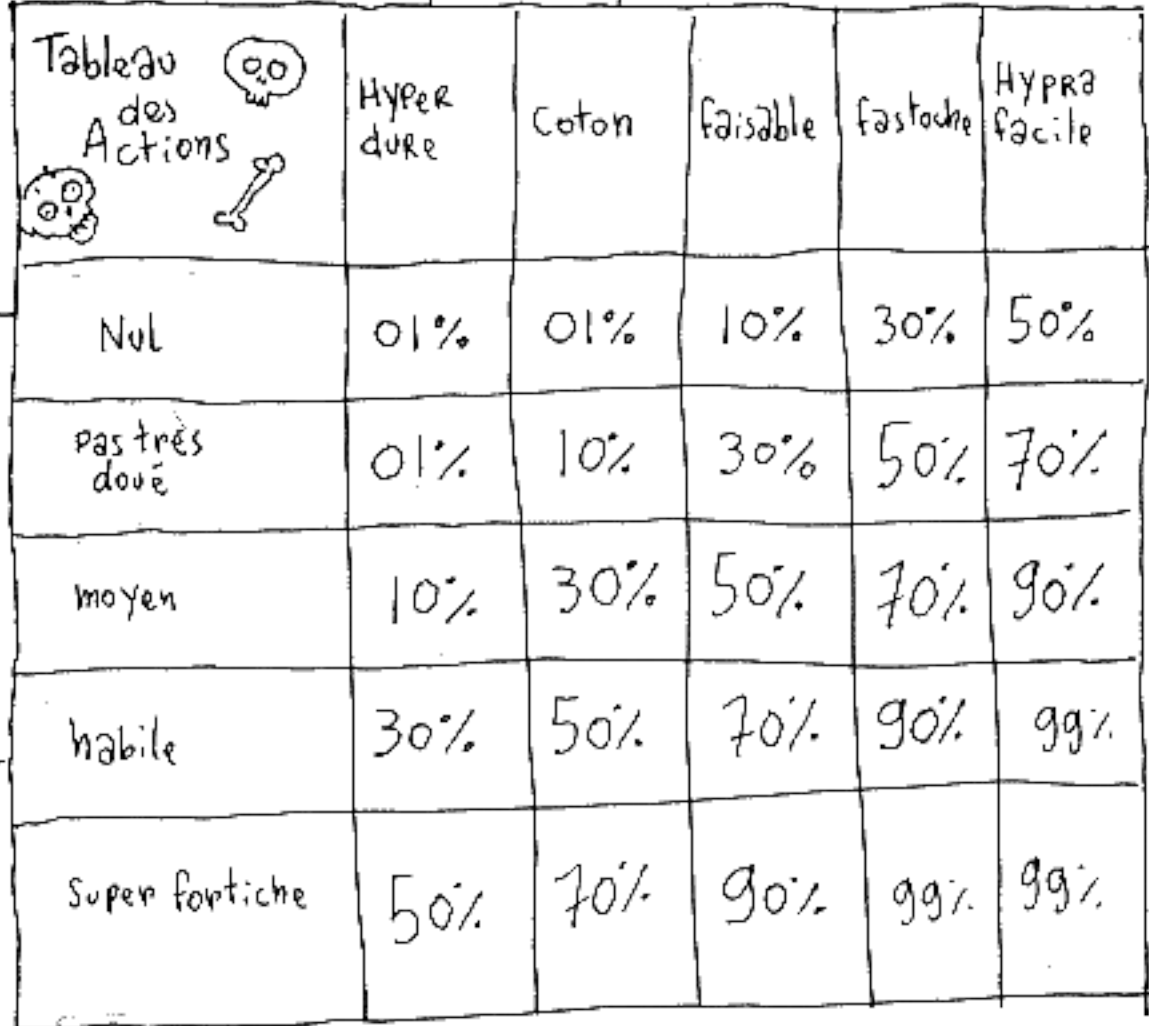 Tableau
des
Actions
Hyper
dure
Coton
faisable
fastoche
Hypra
facile
Nul
01%
01%
10%
30%
50%
pas très
doué
01%
10%
30%
50%
70%
moyen
10%
30%
50%
70%
90%
habile
30%
50%
70%
90%
99%
super fortiche
50%
70%
90%
99%
99%